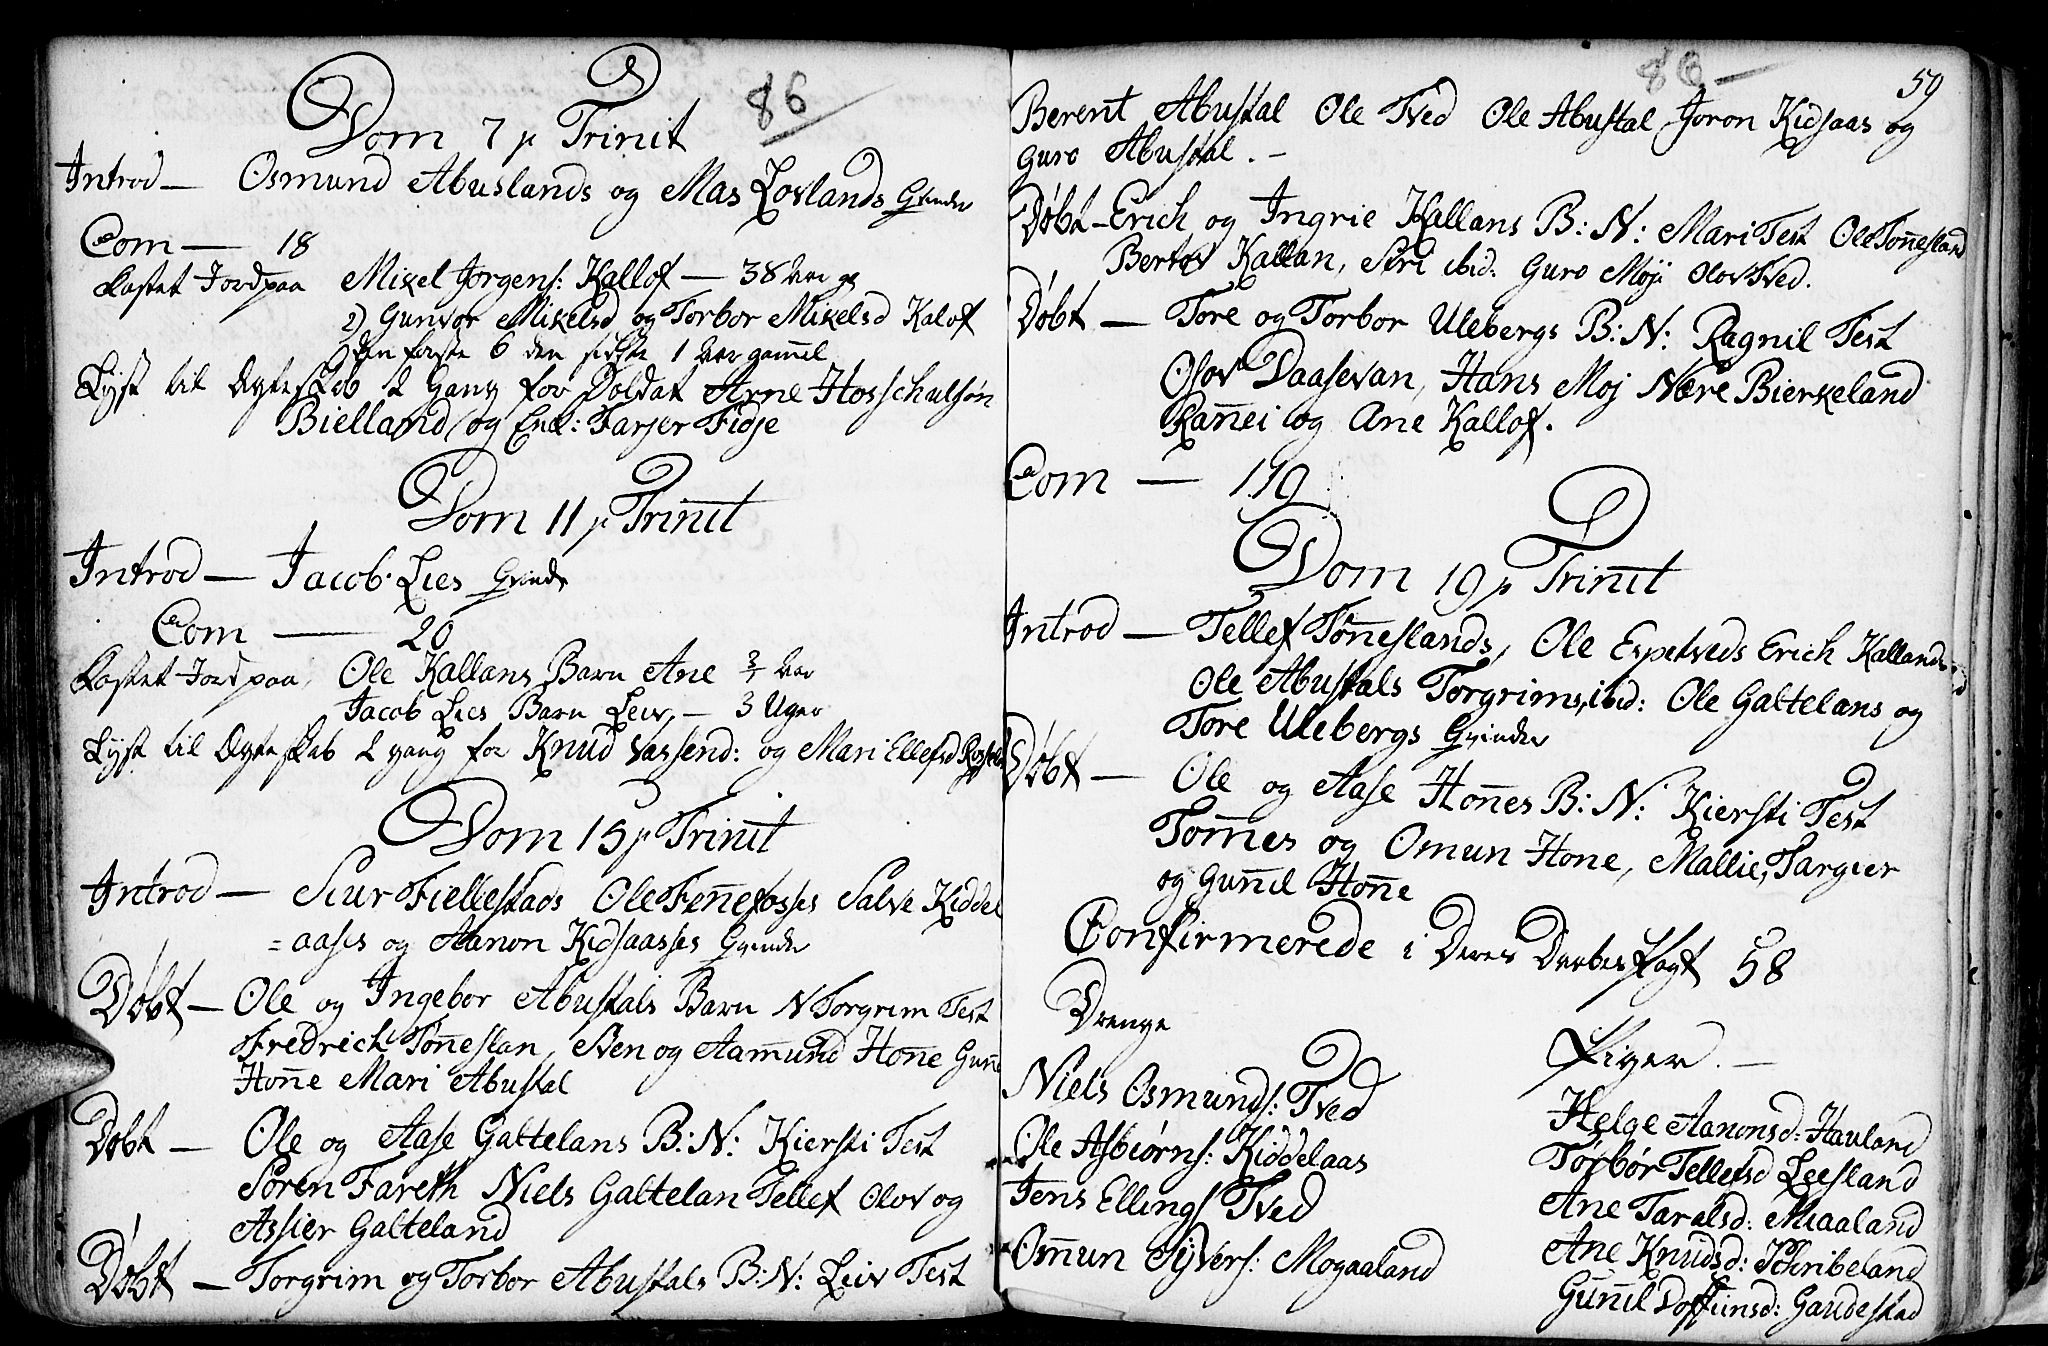 86
Dom 7 p Trinit
Introd — Osmund Abuslands og Mas Lovlands Qvinder
Com — 18
Kastet Jord paa Mikel Jørgens: Kallof — 38 Aar og
2) Gunvor Mikelsd og Torbor Mikelsd Kalof
den første 6 den sidste 1 Aar gamel
Lyst til Ægteskab 2 Gang for Soldat Arne Hosschulsøn
Bielland og Enk: Tarjer Fidje
Dom 11 p Trinit
Introd — Jacob Lies Qvinde
Com — 20
Kastet Jord paa Ole Kallans Barn Ane Aar
Jacob Lies Barn Leiv — 3 Uger
Lyst til Ægteskab 2 gang for Knud Vassend: og Mari Ellefsd
Dom 15 p Trinit
Introd — Siur Fiellestads Ole Fennefosses Salve Kiddel
=aases og Aanon Kidsaasses Qvinder
Døbt — Ole og Ingebor Abustals Barn N Torgrim Test
Fredrich Tønneslan, Sven og Aamund Honne Gunn
Honne Mari Abustal
Døbt — Ole og Aase Galtelans B: N: Kiersti Test
Søren Fareth Niels Galtelan Tellef Olov og
Assier Galteland
Døbt — Torgrim og Torbor Abustals B: N: Leiv Test
86 —
59
Berent Abustal Ole Tved Ole Abustal Joron Kidsaas og
Guro Abustal. —
Døbt — Erich og Ingrie Kallans B: N: Mari Test Ole Tønnesland
Bertov Kallan, Siri ibid: Guro Moji Olov Tved.
Døbt — Tore og Torbor Ulebergs B: N: Ragnil Test
Olov Daasevan, Hans Moj Nære Bierkeland
Rannei og Ane Kallof.
Com — 119
Dom 19 p Trinit
Introd — Tellef Tønneslands, Ole Espetveds Erich Kallands
Ole Abustals Torgrims, ibid: Ole Galtelans og
Tore Ulebergs Qvinder
Døbt — Ole og Aase Honnes B: N: Kiersti Test
Tomes og Omun Hone, Mallie, Targier
og Gunnil Honne
Confirmerede i Deres Daabes Pagt 58
Drenge
Piger. —
Niels Osmunds: Tved
Helge Aanonsd: Hauland
Ole Asbiørns: Kiddelaas
Torbør Tellefsd Leesland
Jens Ellings Tved
Ane Taralsd: Miaaland
Omun Syvers: Mogaaland
Ane Knudsd: Schribeland
Gunnil Doffiinsd: Gaudestad